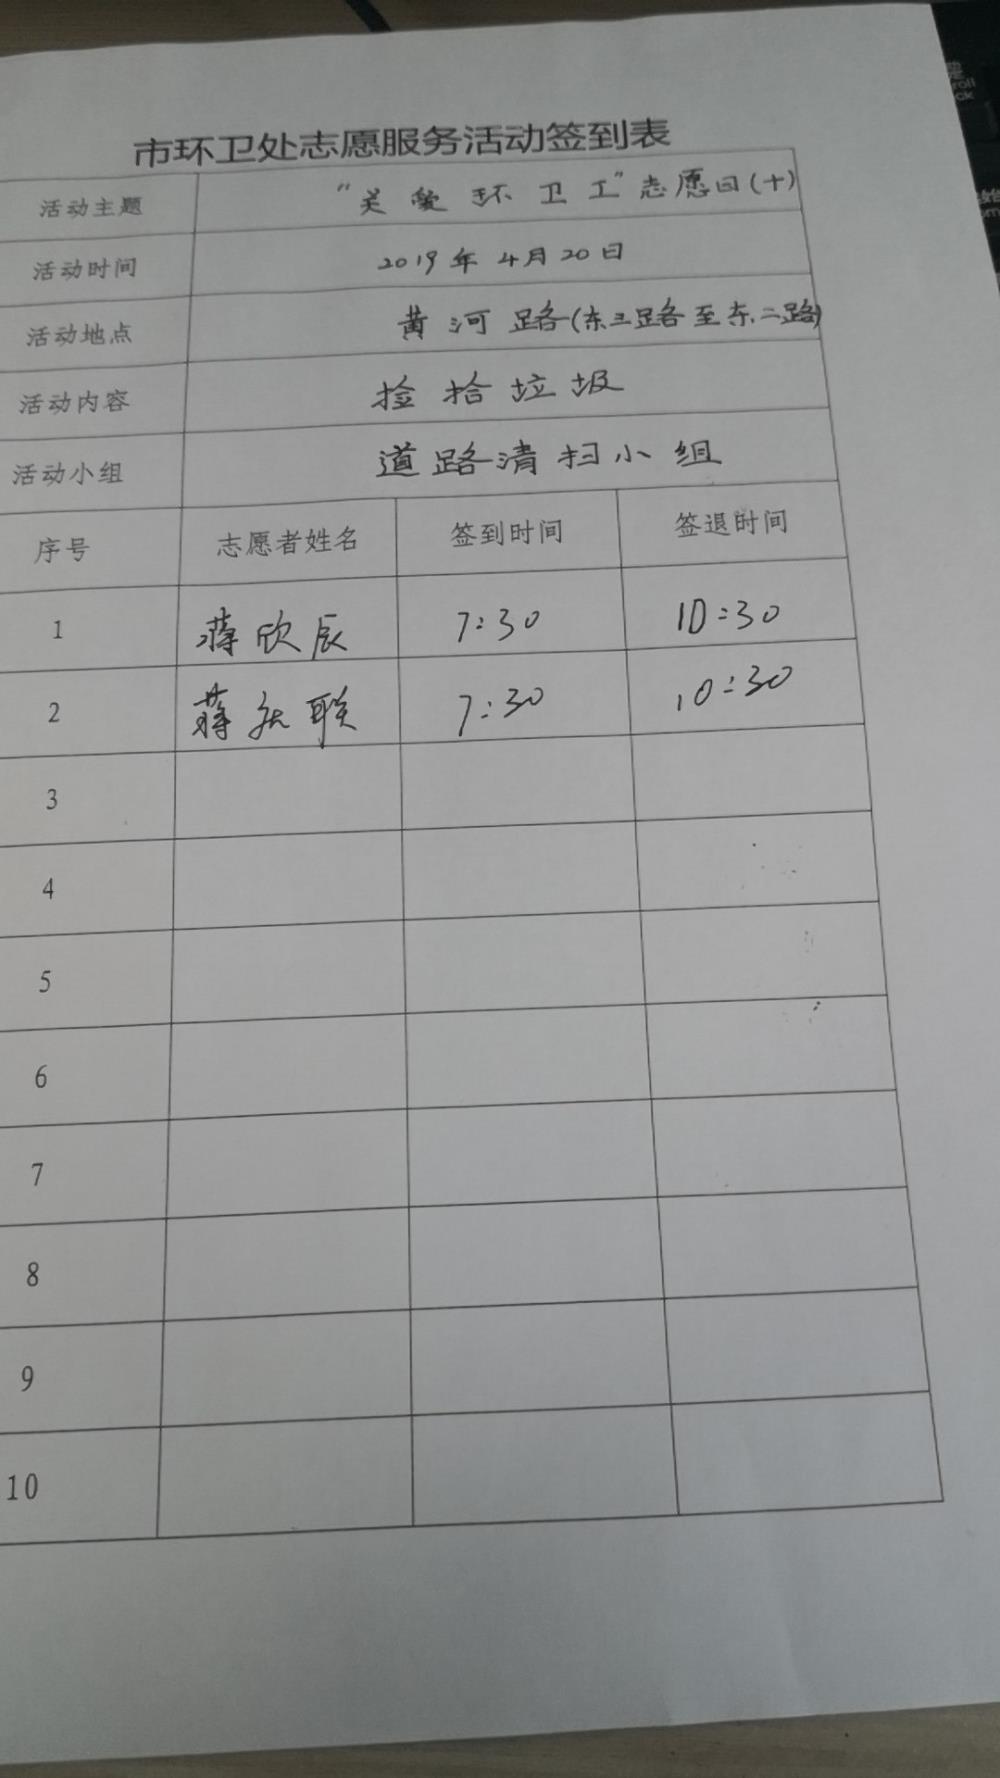 市环卫处志愿服务活动签到表
活动主题 "关爱环卫工"志愿日(十)
活动时间 2019年4月20日
活动地点 黄河路(东三路至东二路)
活动内容 捡拾垃圾
活动小组 道路清扫小组
序号 志愿者姓名 签到时间 签退时间
1 蒋欣辰 7:30 10:30
2 蒋 联 7:30 10:30
3
4
5
6
7
8
9
10